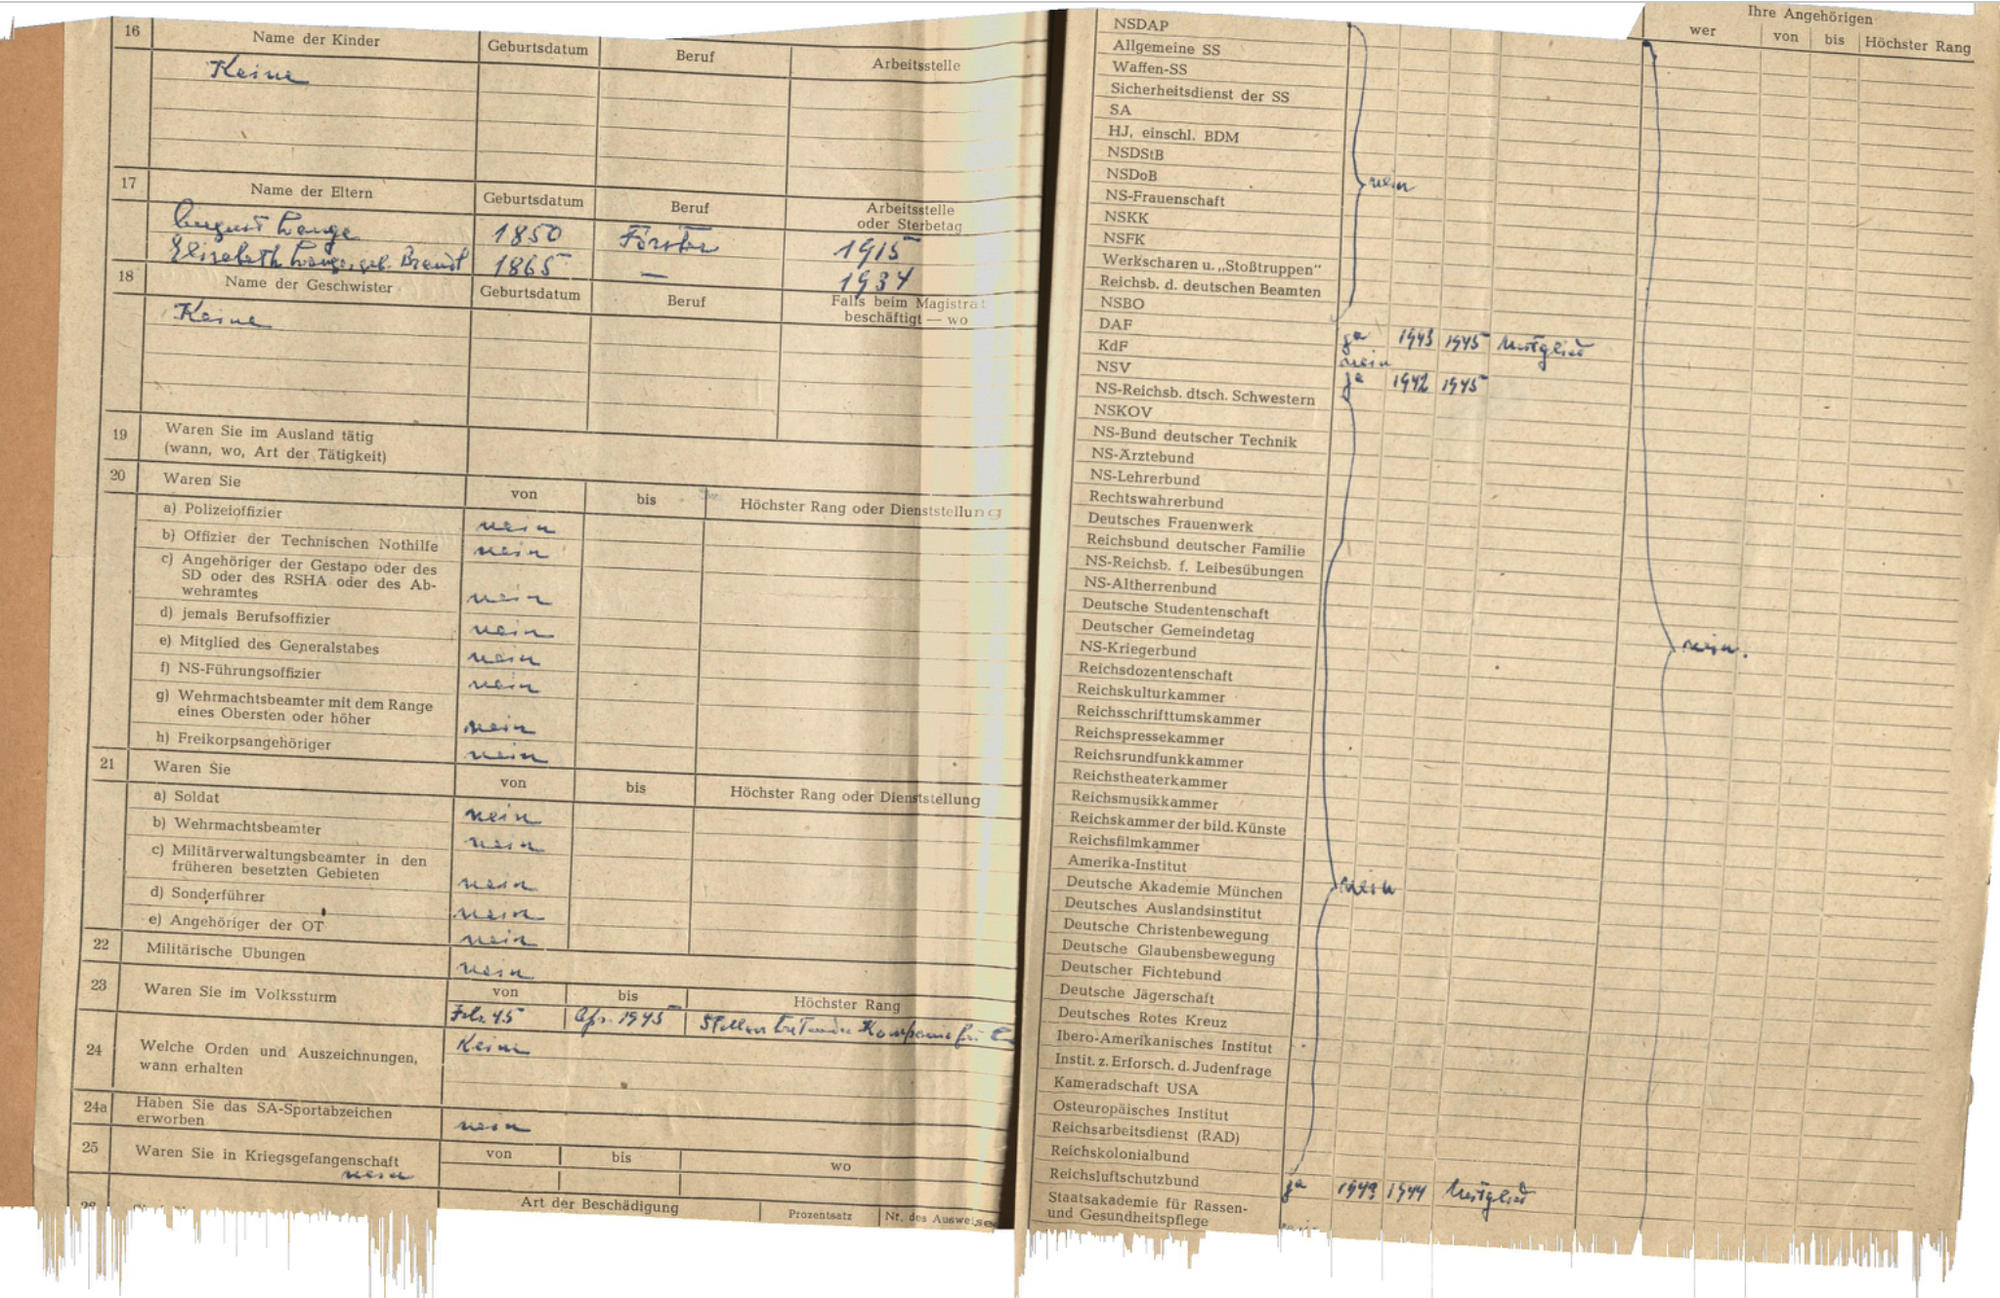 16 Name der Kinder Geburtsdatum Beruf Arbeitsstelle
Keine
17 Name der Eltern Geburtsdatum Beruf Arbeitsstelle
oder Sterbetag
August Lange 1850 Förster 1915
Elisabeth Lange, geb. Brandt 1865 — 1934
18 Name der Geschwister Geburtsdatum Beruf Falls beim Magistrat
beschäftigt — wo
Keine
19 Waren Sie im Ausland tätig
(wann, wo, Art der Tätigkeit)
20 Waren Sie von bis Höchster Rang oder Dienststellung
a) Polizeioffizier nein
b) Offizier der Technischen Nothilfe nein
c) Angehöriger der Gestapo oder des
SD oder des RSHA oder des Ab-
wehramtes nein
d) jemals Berufsoffizier nein
e) Mitglied des Generalstabes nein
f) NS-Führungsoffizier nein
g) Wehrmachtsbeamter mit dem Range
eines Obersten oder höher nein
h) Freikorpsangehöriger nein
21 Waren Sie von bis Höchster Rang oder Dienststellung
a) Soldat nein
b) Wehrmachtsbeamter nein
c) Militärverwaltungsbeamter in den
früheren besetzten Gebieten nein
d) Sonderführer nein
e) Angehöriger der OT nein
22 Militärische Übungen nein
23 Waren Sie im Volkssturm von bis Höchster Rang
Feb. 45 Apr. 1945 Stellvertretender
24 Welche Orden und Auszeichnungen, Keine
wann erhalten
24a Haben Sie das SA-Sportabzeichen
erworben nein
25 Waren Sie in Kriegsgefangenschaft von bis wo
nein
Art der Beschädigung Prozentsatz Nr. des Ausweises
Ihre Angehörigen
wer von bis Höchster Rang
NSDAP
Allgemeine SS
Waffen-SS
Sicherheitsdienst der SS
SA
HJ, einschl. BDM
NSDStB
NSDoB nein
NS-Frauenschaft
NSKK
NSFK
Werkscharen u. „Stoßtruppen"
Reichsb. d. deutschen Beamten
NSBO
DAF ja 1943 1945 Mitglied
KdF nein
NSV ja 1942 1945
NS-Reichsb. dtsch. Schwestern
NSKOV
NS-Bund deutscher Technik
NS-Ärztebund
NS-Lehrerbund
Rechtswahrerbund
Deutsches Frauenwerk
Reichsbund deutscher Familie
NS-Reichsb. f. Leibesübungen
NS-Altherrenbund
Deutsche Studentenschaft
Deutscher Gemeindetag
NS-Kriegerbund nein.
Reichsdozentenschaft
Reichskulturkammer
Reichsschrifttumskammer
Reichspressekammer
Reichsrundfunkkammer
Reichstheaterkammer
Reichsmusikkammer
Reichskammer der bild. Künste
Reichsfilmkammer
Amerika-Institut
Deutsche Akademie München nein
Deutsches Auslandsinstitut
Deutsche Christenbewegung
Deutsche Glaubensbewegung
Deutscher Fichtebund
Deutsche Jägerschaft
Deutsches Rotes Kreuz
Ibero-Amerikanisches Institut
Instit. z. Erforsch. d. Judenfrage
Kameradschaft USA
Osteuropäisches Institut
Reichsarbeitsdienst (RAD)
Reichskolonialbund
Reichsluftschutzbund ja 1944 Mitglied
Staatsakademie für Rassen-
und Gesundheitspflege